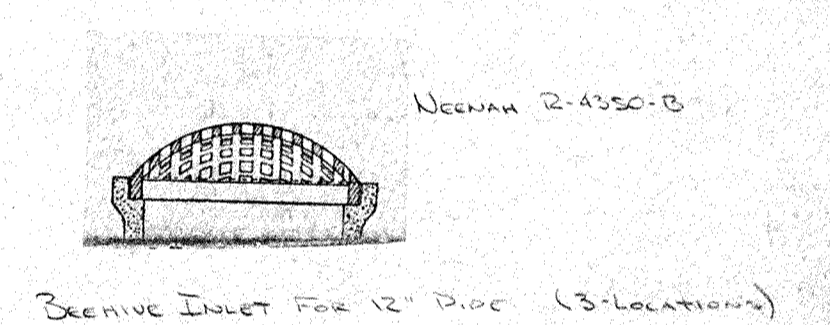 NEENAH R-4350-B
BEEHIVE INLET FOR 12" PIPE (3-LOCATIONS)